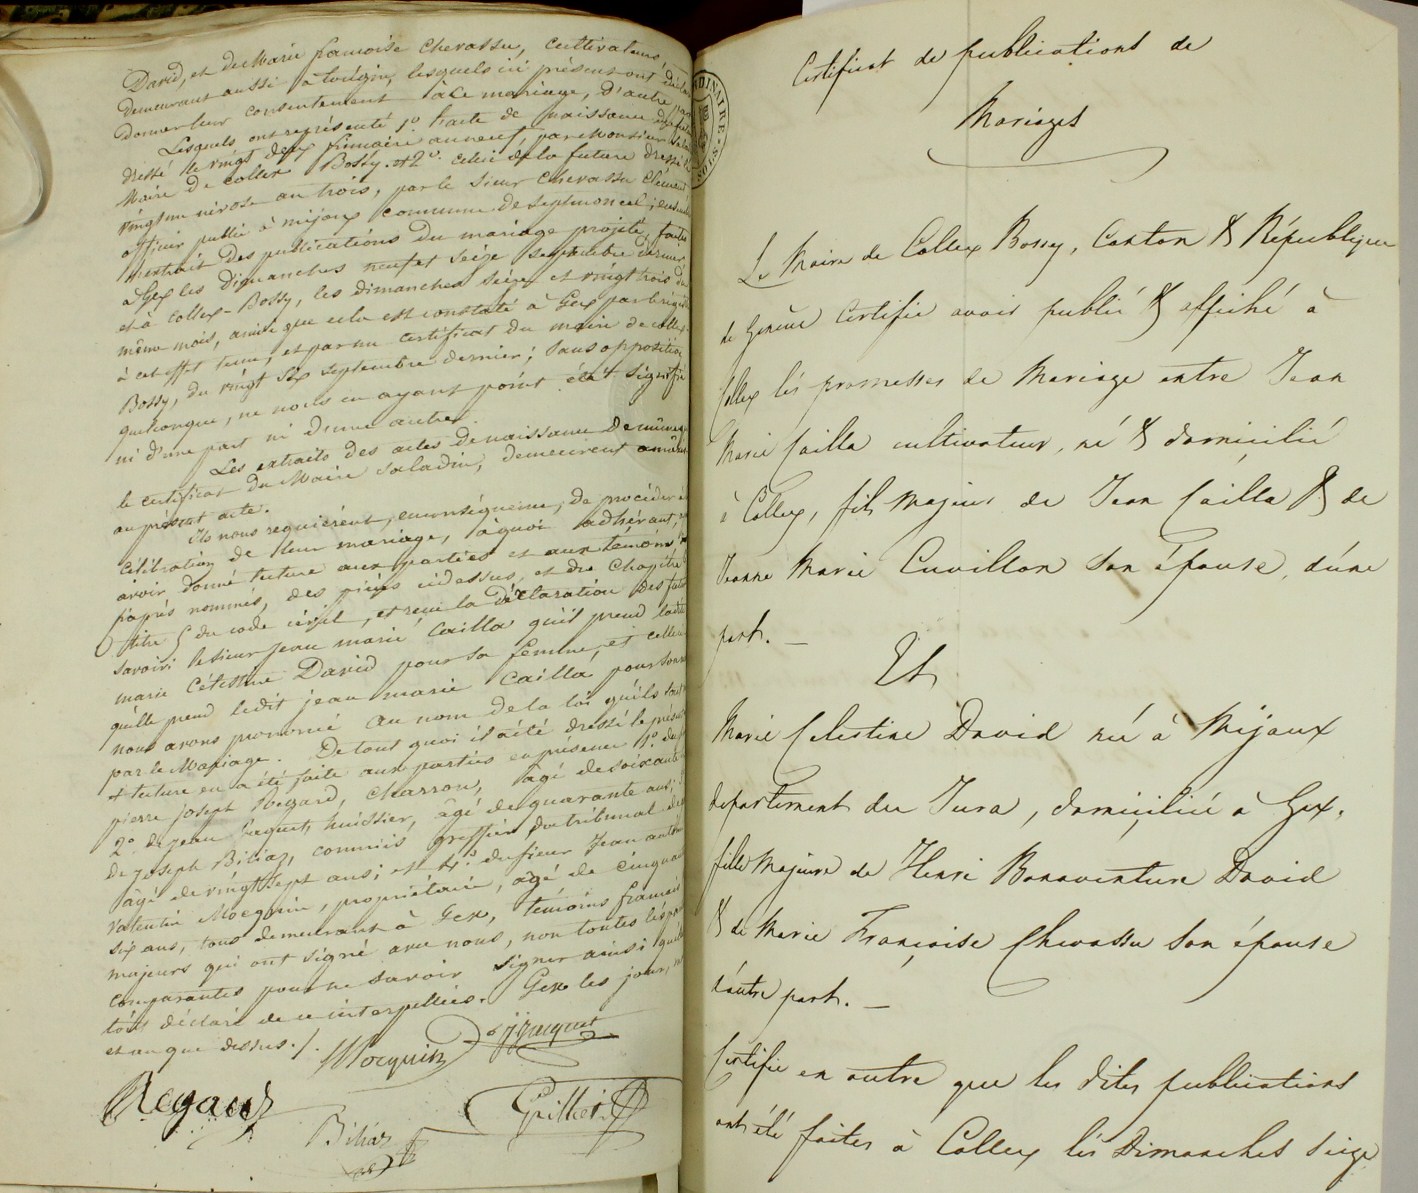 David, et de Marie françoise Chevassu, cultivateurs,
demeurant aussi à tougin, lesquels ici présents ont déclaré
donner leur consentement à ce mariage, d'autre part
Lesquels ont représenté 1° l'acte de naissance du futur
dressé le vingt deux frimaire an neuf, par Monsieur Saladin
Maire de Collex Bossy. et 2°. celui de la future dressé le
vingt un nivose an trois, par le sieur Chevassu Clément
officier public à mijoux commune de Septmoncel; ensemble
l'extrait des publications du mariage projeté, faites
à Gex les dimanches neuf et seize septembre dernier
et à Collex-Bossy, les dimanches seize et vingt trois du
même mois, ainsi que cela est constaté à Gex par le registre
à cet effet tenu, et par un certificat du maire de Collex-
Bossy, du vingt six septembre dernier; sans opposition
quelconque, ne nous en ayant point été signifié
ni d'une part ni d'une autre.
Les extraits des actes de naissance de même que
le certificat du Maire Saladin, demeurent annexés
au présent acte.
Ils nous requièrent, en conséquence, de procéder à la
célébration de leur mariage, à quoi adhérant, après
avoir donné lecture aux parties et aux témoins
ci après nommés, des pièces ci dessus, et du Chapitre
titre 5 du code civil, et reçu la déclaration des futurs
savoir: le sieur jean marie Cailla qu'il prend la dite
marie Célestine David pour sa femme, et celle ci
qu'elle prend ledit jean marie Cailla pour son mari
nous avons prononcé au nom de la loi qu'ils sont
par le Mariage. De tout quoi il a été dressé le présent
+ lecture en a été faite aux parties en présence 1°. de
pierre joseph Regard, Charron, âgé de soixante
2° de jean Jacquet, huissier, âgé de quarante ans;
de joseph Biliaz, commis greffier du tribunal de
âgé de vingt sept ans; et 4°. du sieur Jean antoine
valentin Mocquin, propriétaire, âgé de cinquante
six ans, tous demeurant à Gex, témoins français
majeurs qui ont signé avec nous, non toutes les parties
comparantes pour ne savoir signer ainsi qu'elles
l'ont déclaré de ce interpellées. Gex les jour, mois
et an que dessus./.
Mocquin
J Jacquet
Regard
Biliaz
Certificat de publications de
Mariages
Le Maire de Collex Bossy, Canton & République
de Genève Certifie avoir publié & affiché à
Collex les promesses de Mariage entre Jean
Marie Cailla cultivateur, né & domicilié
à Collex, fils majeur de Jean Cailla & de
Jeanne Marie Cuvillon son épouse, d'une
part. —
Et
Marie Celestine David née à Mijoux
departement du Jura, domiciliée à Gex,
fille Majeure de Henri Bonaventure David
& de Marie Françoise Chevassu son épouse
d'autre part. —
Certifie en outre que les dites publications
ont été faites à Collex les Dimanches seize